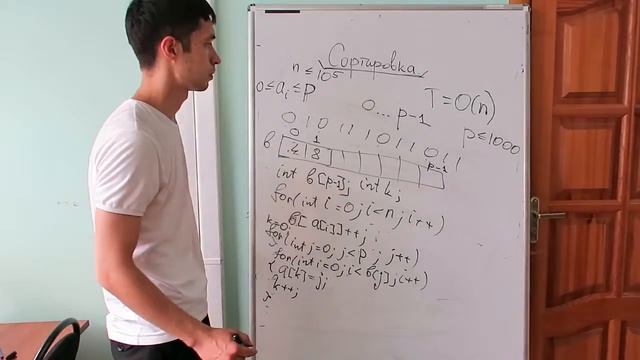 Сортировка
n ≤ 10⁵
0 ≤ aᵢ ≤ p
T = O(n)
0 ... p-1
p ≤ 1000
0 1 0 1 1 1 0 1 1 0 1 1
0 1 p-1
b 4 8
int b[p-1]; int k;
for(int i=0; i<n; i++)
b[a[i]]++;
k=0;
for(int j=0; j<p; j++)
for(int i=0; i<b[j]; i++)
{ a[k]=j;
k++;
}